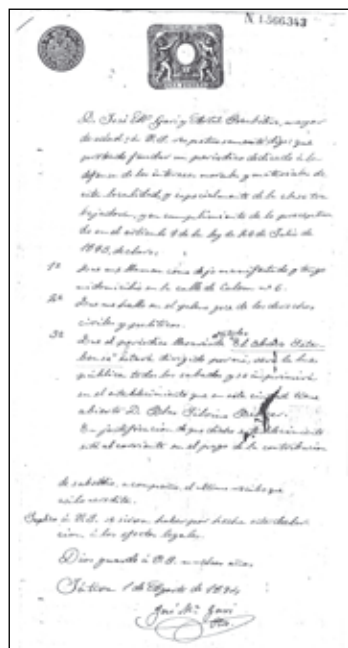 N. 1.566.343
D. José Mª Gari y Artal Presbítero, mayor
de edad, á V.S. respetuosamente digo: que
queriendo fundar un periódico dedicado á la
defensa de los intereses morales y materiales de
esta localidad, y especialmente de la clase tra
bajadora, y en cumplimiento de lo
en el artículo de la ley de 26 de Julio de
1883, declaro:
1º Que me llamo como dejo manifestado y tengo
mi domicilio en la calle de Colom nº 6.
2º Que me hallo en el pleno goce de los derechos
civiles y políticos.
3º Que el periódico El Obrero
será dirigido por mí, verá la luz
pública todos los sabados y se imprimirá
en el establecimiento que en esta ciudad tiene
abierto D. Blas
En justificacion de que dicho establecimiento
está al corriente en el pago de la contribucion
de subsidio, acompaño el último recibo que
acredita.
Suplico á V.S. se sirva haber por hecha esta decla
racion á los efectos legales.
Dios guarde á V.S. muchos años.
Játiva 1 de Agosto de 1894
José Mª Gari
Pbro.